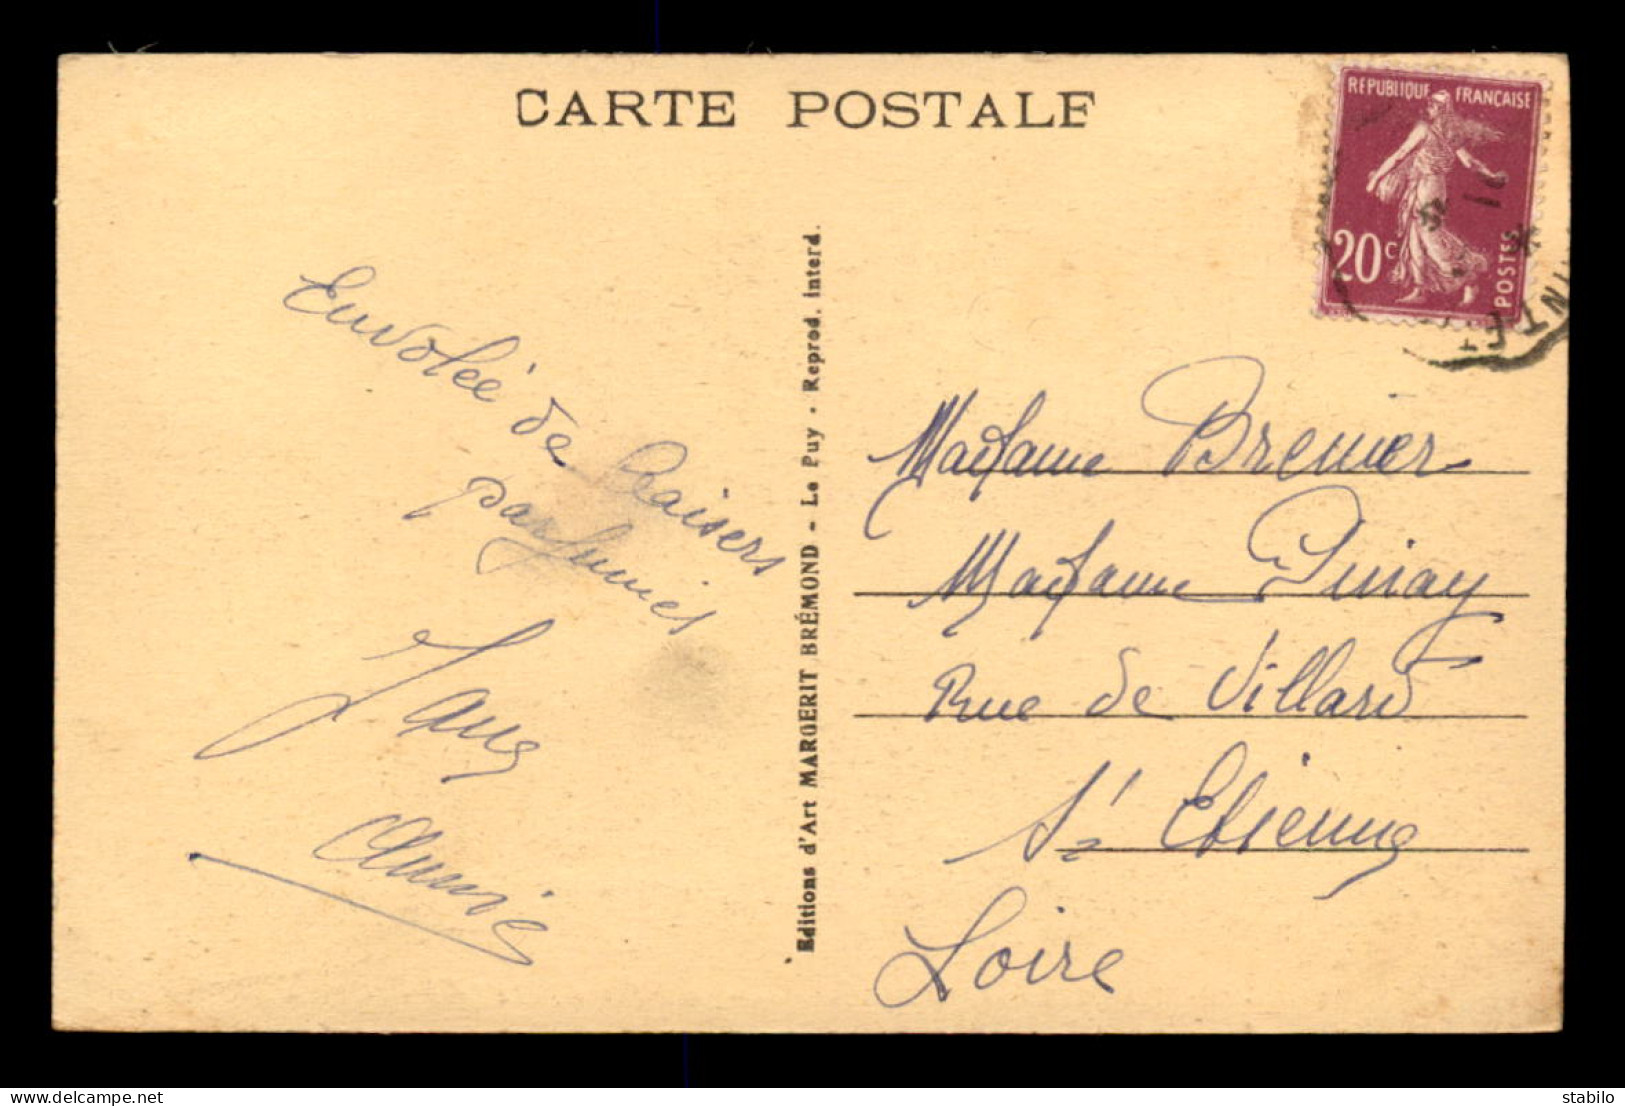 CARTE POSTALE
REPUBLIQUE FRANÇAISE
20c
POSTES
Envolée de baisers
parfumés
Editions d'Art MARGERIT BRÉMOND - Le Puy - Reprod. interd.
Madame Brenier
Madame
Rue de Villard
St Etienne
Loire
delcampe.net
stabilo